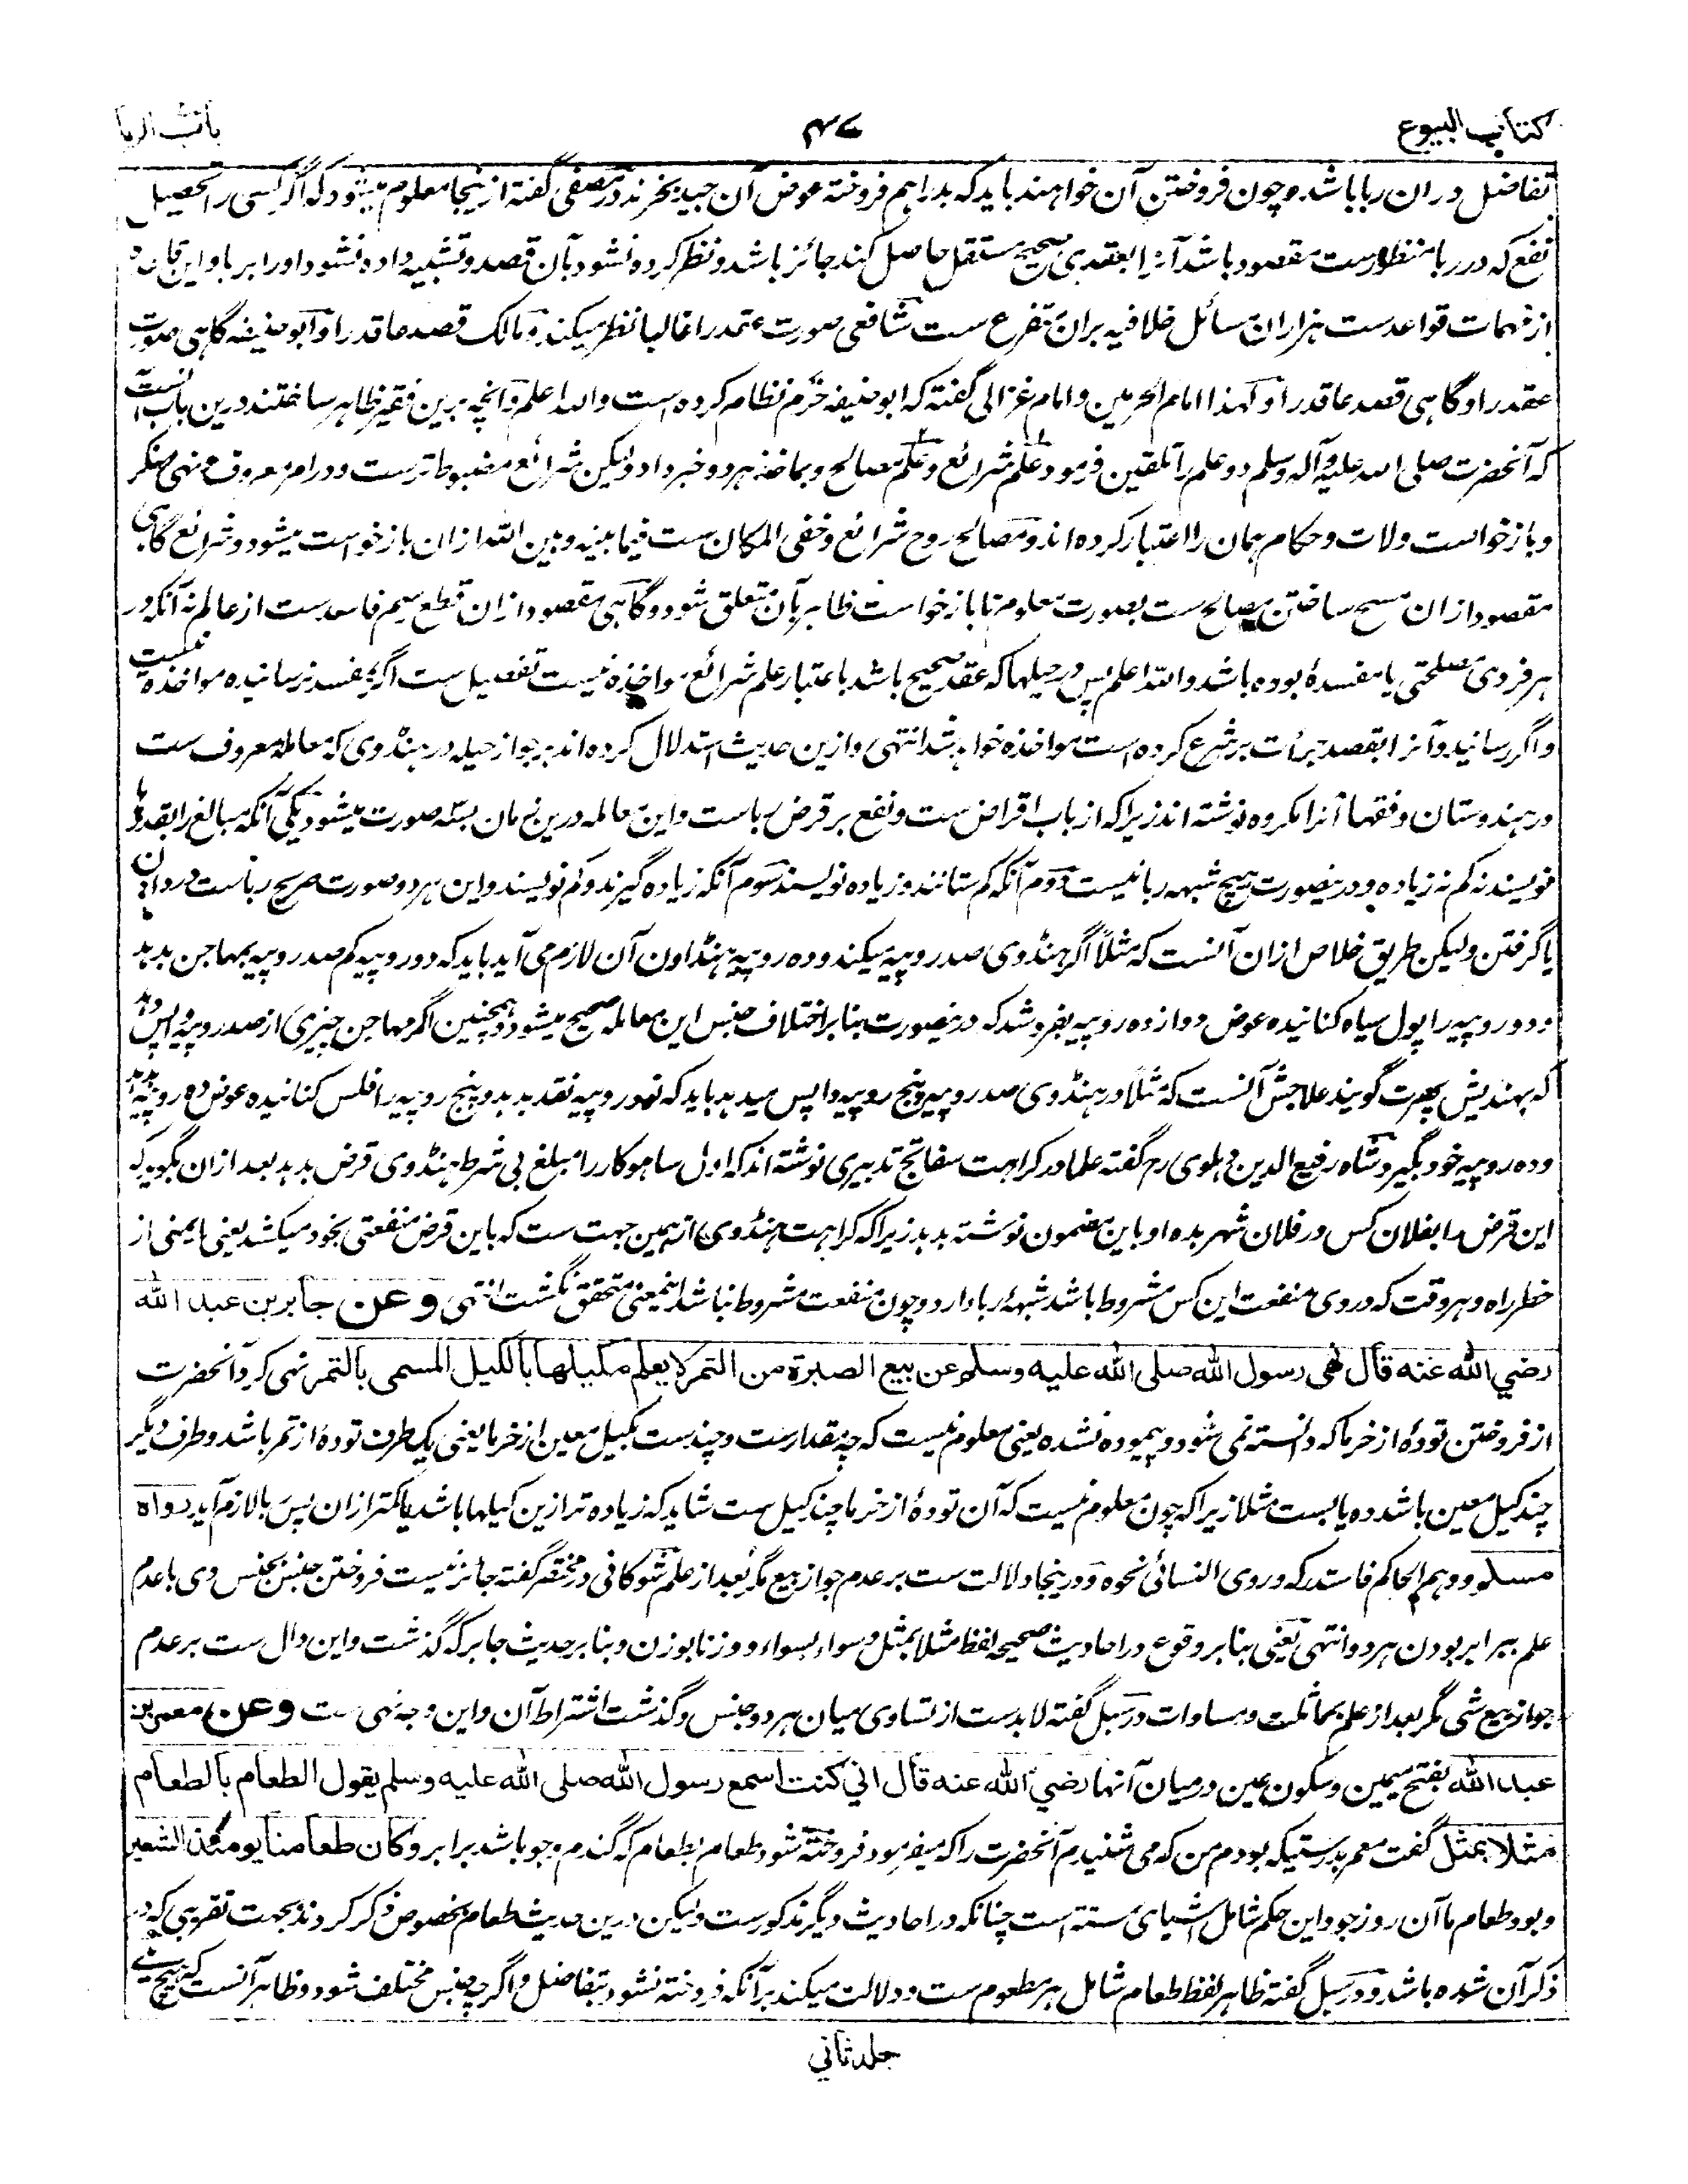 کتاب البیوع
۴۷
باب الربا
تفاضل دران ربا باشد و چون فروختن آن خواهند باید که بدراهم فروخته عوض آن جید بخرند در مصفی گفته ازینجا معلوم میشود که اگر کسی را تحصیل
نفع که در ربا منظورست مقصود باشد آنرا بعقدی صحیح مستقل حاصل کند جائز باشد و نظر کرده نشود بآن قصد و تشبیه داده نشود او را بربا و این قاعده
از مهمات قواعدست هزاران مسائل خلافیه بران متفرع ست شافعی صورت عقد را غالبا نظر میکند و مالک قصد عاقد را و ابوحنیفه گاهی صورت
عقد را و گاهی قصد عاقد را و لهذا امام الحرمین و امام غزالی گفته که ابوحنیفه خرم نظام کرده است والله اعلم و آنچه برین فقیر ظاهر ساختند درین باب آنست
که آنحضرت صلی الله علیه و آله وسلم دو علم را تلقین فرمود علم شرائع و علم مصالح و بماخذ هر دو خبر داد ولیکن شرائع مضبوط ترست و در امر معروف و نهی منکر
و بازخواست ولات و حکام همان را اعتبار کرده اند و مصالح روح شرائع و خفی المکان ست فیما بینه و بین الله ازان بازخواست میشود و شرائع گاهی
مقصود ازان مسح ساختن مصالح ست بصورت معلومه تا بازخواست ظاهر بآن متعلق شود و گاهی مقصود ازان قطع رسم فاسدست از عالم نه آنکه در
هر فردی مصلحتی یا مفسدهٔ بوده باشد والله اعلم پس در حیلها که عقد صحیح باشد باعتبار علم شرائع مواخذه نیست تفصیل ست اگر بمفسده نرسانیده مواخذه نیست
و اگر رسانید و آنرا بقصد جرأت بر شرع کرده است مواخذه خواهد شد انتهی و ازین حدیث استدلال کرده اند بر جواز حیله در هنڈوی که معاملهٔ معروف ست
در هندوستان و فقها آنرا مکروه نوشته اند زیرا که از باب اقراض ست و نفع بر قرض رباست و این معامله درین زمان بسه صورت میشود یکی آنکه مبالغ را بقدرها
نویسند نه کم نه زیاده و درینصورت هیچ شبهه ربا نیست دوم آنکه کم ستانند و زیاده نویسند سوم آنکه زیاده گیرند و کم نویسند و این هر دو صورت صریح رباست در دادن
یا گرفتن ولیکن طریق خلاص ازان آنست که مثلاً اگر هنڈوی صد روپیه میکند و ده روپیه هنڈاون آن لازم می آید باید که دو روپیه کم صد روپیه بمهاجن بدهد
و دو روپیه را پول سیاه کنانیده عوض دوازده روپیه بفروشد که درینصورت بنابر اختلاف جنس این معامله صحیح میشود و همچنین اگر مهاجن چیزی از صد روپیه واپس دهد
که بهندیش پهرت گویند علاجش آنست که مثلاً در هنڈوی صد روپیه پنج روپیه واپس میدهد باید که نود روپیه نقد بدهد و پنج روپیه را فلس کنانیده عوض ده روپیه بدهد
و ده روپیه خود بگیرد شاه رفیع الدین دهلوی رح گفته علما در کراهت سفاتج تدبیری نوشته اند که اول ساهوکار را مبلغ بی شرط هنڈوی قرض بدهد بعد ازان بگوید که
این قرض را بفلان کس در فلان شهر بده او باین مضمون نوشته بدهد زیرا که کراهت هنڈوی از همین جهت ست که باین قرض منفعتی بخود میکشد یعنی ایمنی از
خطر راه و هر وقت که در وی منفعت این کس مشروط باشد شبههٔ ربا دارد و چون منفعت مشروط نباشد اینمعنی متحقق نگشت انتهی وعن جابر بن عبد الله
رضي الله عنه قال نهى رسول الله صلى الله عليه وسلم عن بيع الصبرة من التمر لا يعلم مكيلها بالكيل المسمى بالتمر نهی کرد آنحضرت
از فروختن تودهٔ از خرما که دانسته نمی شود و پیموده نشده یعنی معلوم نیست که چه مقدارست و چندست بکیل معین از خرما یعنی یک طرف تودهٔ از تمر باشد و طرف دیگر
چند کیل معین باشد ده یا بست مثلا زیرا که چون معلوم نیست که آن تودهٔ از خرما چند کیل ست شاید که زیاده تر ازین کیلها باشد یا کمتر ازان پس ربا لازم آید رواه
مسلم و وهم الحاکم فاستدرکه و روی النسائی نحوه و درینجا دلالت ست بر عدم جواز بیع مگر بعد از علم شوکانی در مختصر گفته جائز نیست فروختن جنس بجنس وی با عدم
علم ببرابر بودن هر دو انتهی یعنی بنابر وقوع در احادیث صحیحه لفظ مثلا بمثل و سواء بسواء و وزنا بوزن و بنابر حدیث جابر که گذشت و این دال ست بر عدم
جواز بیع شی مگر بعد از علم بمماثلت و مساوات در سبل گفته لابدست از تساوی میان هر دو جنس و گذشت اشتراط آن و این وجه نهی ست وعن معمر بن
عبد الله بفتح میمین و سکون عین درمیان آنها رضي الله عنه قال اني كنت اسمع رسول الله صلى الله عليه وسلم يقول الطعام بالطعام
مثلا بمثل گفت معمر بدرستیکه بودم من که می شنیدم آنحضرت را که میفرمود فروخته شود طعام بطعام که گندم و جو باشد برابر وكان طعامنا يومئذ الشعير
و بود طعام ما آن روز جو و این حکم شامل اشیای سته است چنانکه در احادیث دیگر مذکورست ولیکن درین حدیث طعام بخصوص ذکر کردند بجهت تقریبی که در
ذکر آن شده باشد و در سبل گفته ظاهر لفظ طعام شامل هر مطعوم ست و دلالت میکند بر آنکه فروخته نشود بتفاضل و اگرچه جنس مختلف شود و ظاهر آنست که هیچ یکے
جلد ثانی